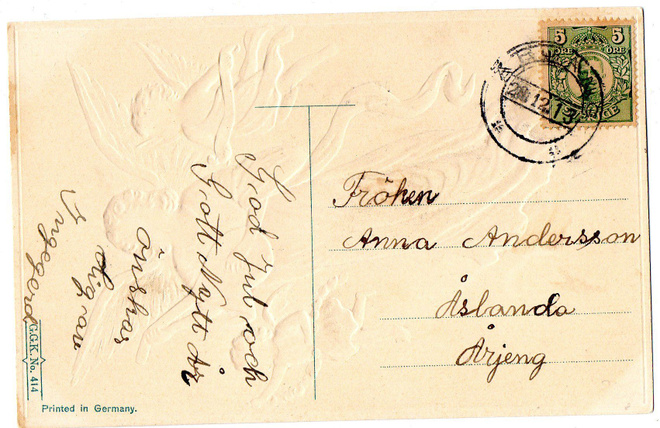 God Jul och
Gott Nytt År
önskar
dig av
Ingegerd
G.G.K. No. 414
Printed in Germany.
5 5
ÖRE ÖRE
SVERIGE
28.12.13
Fröken
Anna Andersson
Åslanda
Årjeng